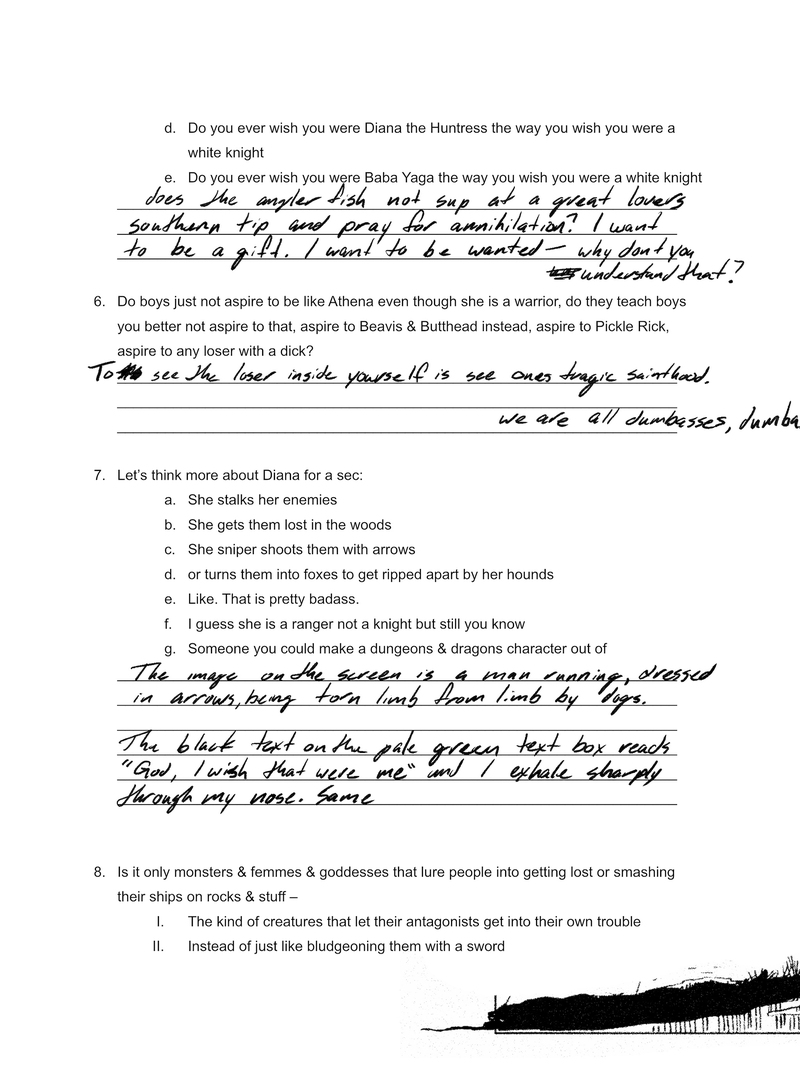 d. Do you ever wish you were Diana the Huntress the way you wish you were a
white knight
e. Do you ever wish you were Baba Yaga the way you wish you were a white knight
does the angler fish not sup at a great lovers
southern tip and pray for annihilation? I want
to be a gift. I want to be wanted — why don't you
understand that?
6. Do boys just not aspire to be like Athena even though she is a warrior, do they teach boys
you better not aspire to that, aspire to Beavis & Butthead instead, aspire to Pickle Rick,
aspire to any loser with a dick?
To see the loser inside yourself is see ones tragic sainthood.
we are all dumbasses, dumba
7. Let's think more about Diana for a sec:
a. She stalks her enemies
b. She gets them lost in the woods
c. She sniper shoots them with arrows
d. or turns them into foxes to get ripped apart by her hounds
e. Like. That is pretty badass.
f. I guess she is a ranger not a knight but still you know
g. Someone you could make a dungeons & dragons character out of
The image on the screen is a man running, dressed
in arrows, being torn limb from limb by dogs.
The black text on the pale green text box reads
"God, I wish that were me" and I exhale sharply
through my nose. Same
8. Is it only monsters & femmes & goddesses that lure people into getting lost or smashing
their ships on rocks & stuff –
I. The kind of creatures that let their antagonists get into their own trouble
II. Instead of just like bludgeoning them with a sword